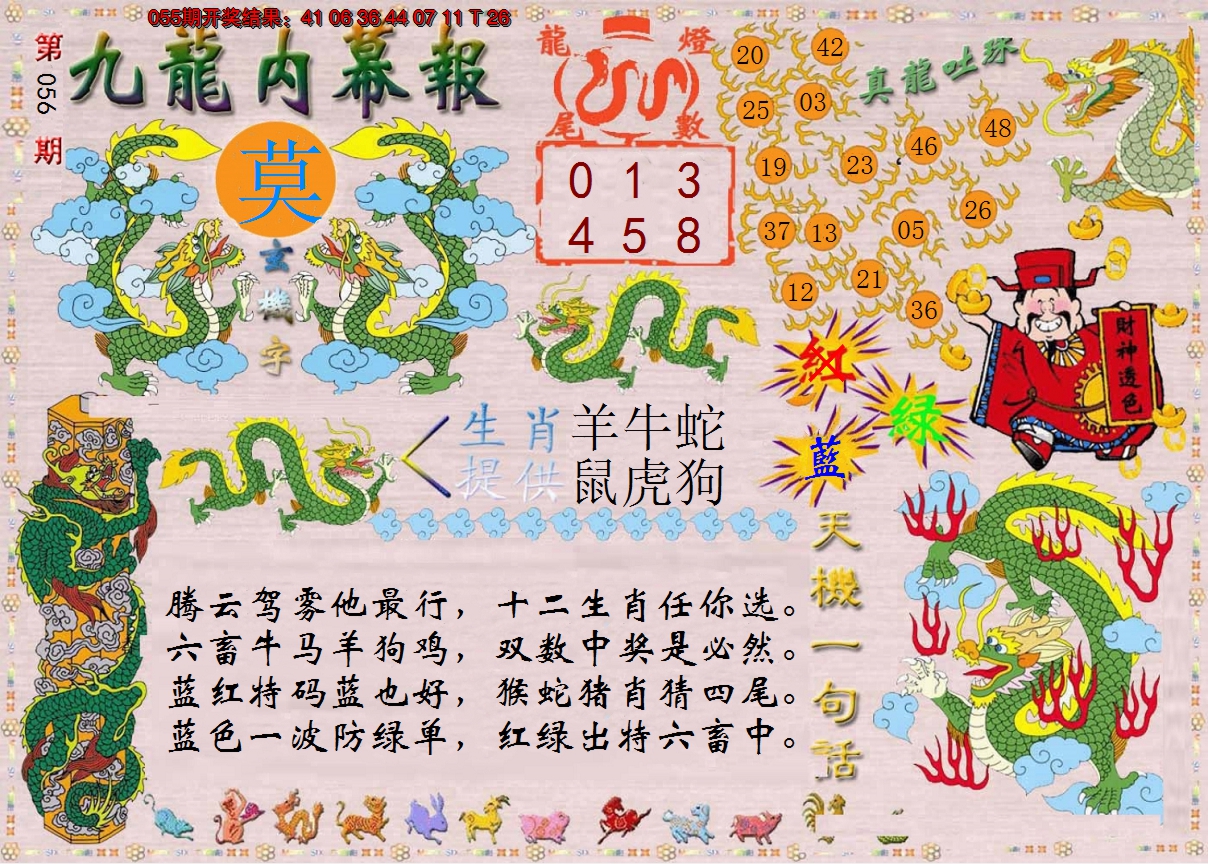 055期开奖结果：41 06 36 44 07 11 T 26
第056期
九龍内幕報
莫
玄機字
龍燈
尾數
0 1 3
4 5 8
真龍吐珠
20 42
25 03
46 48
19 23
26
37 13 05
21
12 36
財神透色
紅
绿
藍
生肖 羊牛蛇
提供 鼠虎狗
天機一句话
腾云驾雾他最行，十二生肖任你选。
六畜牛马羊狗鸡，双数中奖是必然。
蓝红特码蓝也好，猴蛇猪肖猜四尾。
蓝色一波防绿单，红绿出特六畜中。